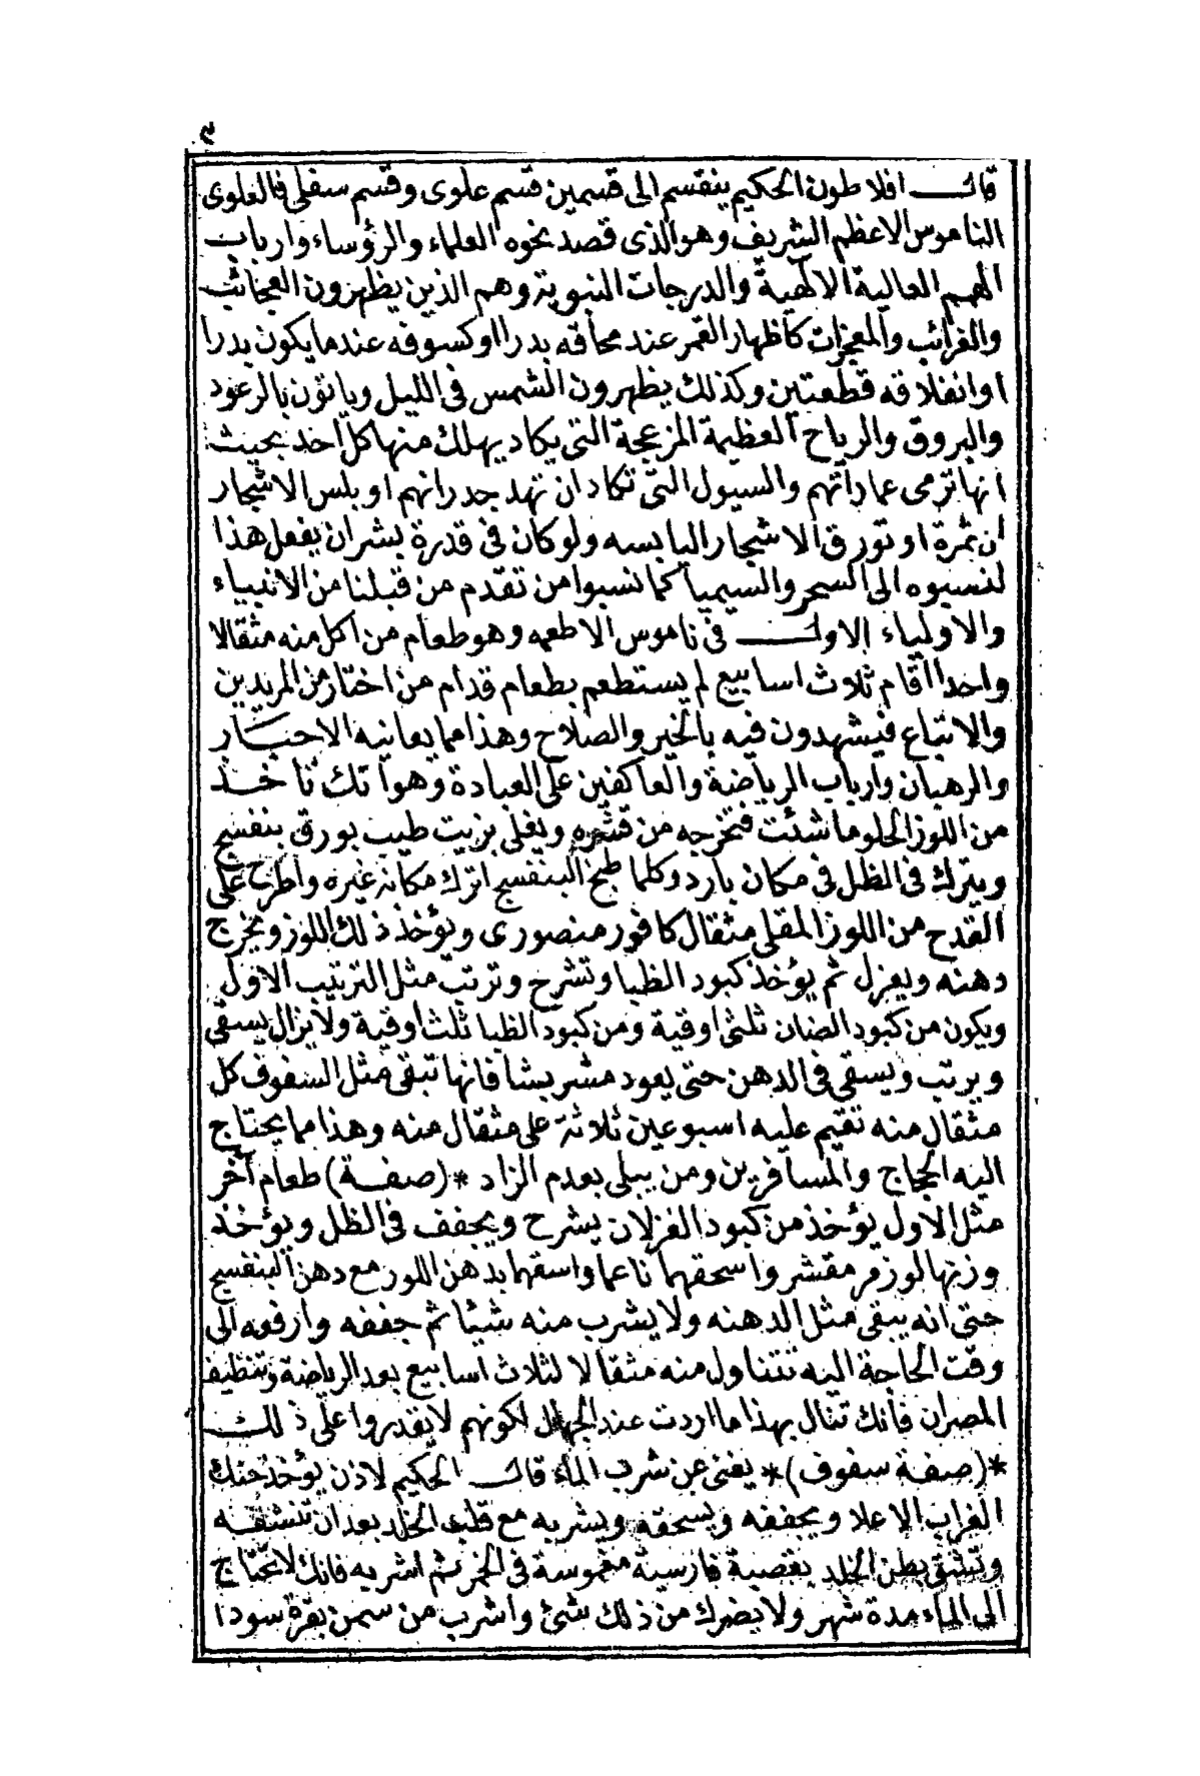 ٣
قال افلاطون الحكيم ينقسم الى قسمين قسم علوى وقسم سفلى فالعلوى
الناموس الاعظم الشريف وهو الذى قصد نحوه العلماء والرؤساء وارباب
الهمم العالية الالهية والدرجات النبوية وهم الذين يظهرون العجائب
والغرائب والمعجزات كاظهار القمر عند محاقه بدرا اوكسوفه عندما يكون بدرا
اوانفلاقه قطعتين وكذلك يظهرون الشمس فى الليل وياتون بالرعود
والبروق والرياح العظيمة المزعجة التى يكاد يهلك منها كل احد بحيث
انها ترمى عماراتهم والسيول التى تكاد ان تهد جدرانهم او بلس الاشجار
ان ثمرة او تورق الاشجار اليابسه ولوكان فى قدرة بشر ان يفعل هذا
لنسبوه الى السحر والسيميا كما نسبوا من تقدم من قبلنا من الانبياء
والاولياء الاول فى ناموس الاطعمه وهو طعام من اكل منه مثقالا
واحدا اقام ثلاث اسابيع لم يستطعم بطعام قدام من اختار من المريدين
والاتباع فيشهدون فيه بالخير والصلاح وهذا مما يعانيه الاحبار
والرهبان وارباب الرياضة والعاكفين على العبادة وهو انك تاخذ
من اللوز الحلو ما شئت فتخرجه من قشره ويغلى بزيت طيب بورق بنفسج
ويترك فى الظل فى مكان بارد وكلما طبخ البنفسج اترك مكانه غيره واطرح على
القدح من اللوز المقلى مثقال كافور منصورى ويؤخذ ذلك اللوز ويخرج
دهنه ويعزل ثم يؤخذ كبود الظبا وتشرح وترتب مثل الترتيب الاول
ويكون من كبود الضان ثلثى اوقية ومن كبود الظبا ثلث اوقية ولا يزال يسقى
ويرتب ويسقى فى الدهن حتى يعود مشربشا فانها تبقى مثل السفوف كل
مثقال منه تقيم عليه اسبوعين ثلاثة على مثقال منه وهذا مما يحتاج
اليه الحجاج والمسافرين ومن يبلى بعدم الزاد * (صفة) طعام آخر
مثل الاول يؤخذ من كبود الغزلان يشرح ويجفف فى الظل ويؤخذ
وزنها لوز مر مقشر واسحقهما ناعما واسقهما بدهن اللوز مع دهن البنفسج
حتى انه يبقى مثل الدهنه ولا يشرب منه شيئا ثم جففه وارفعه الى
وقت الحاجة اليه تتناول منه مثقالا لثلاث اسابيع بعد الرياضة وتنظيف
المصران فانك تنال بهذا ما اردت عند الجهال لكونهم لا يقدروا على ذلك
* (صفة سفوف) * يغنى عن شرب الماء قال الحكيم لاذن يؤخذ حنك
الغراب الاعلا ويجففه ويسحقه ويشربه مع قلب الخلد بعد ان تنشفه
وتشق بطن الخلد بقصبة فارسية مغموسة فى الخمر ثم اشربه فانك لا تحتاج
الى الماء مدة شهر ولا يضرك من ذلك شئ واشرب من سمن بقرة سودا